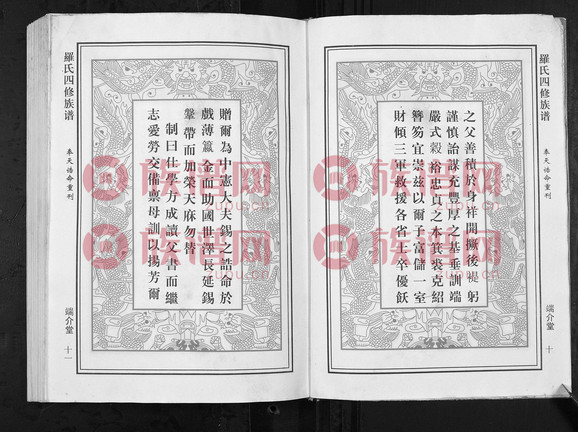 羅氏四修族谱
奉天誥命重刊
端介堂
十
之父善積於身祥開厥後褆躬
謹慎詒謀充豐厚之基垂訓端
嚴式穀裕忠貞之本箕裘克紹
簪笏宜崇兹以爾子富儲一室
財傾三軍救援各省士卒優飫
羅氏四修族谱
奉天誥命重刊
端介堂
十一
贈爾為中憲大夫錫之誥命於
戲薄籯金而助國世澤長延錫
鞶帶而加榮天庥勿替
制曰仕學方成讀父書而繼
志愛勞交備禀母訓以揚芳爾
族谱网
族谱网
族谱网
族谱网